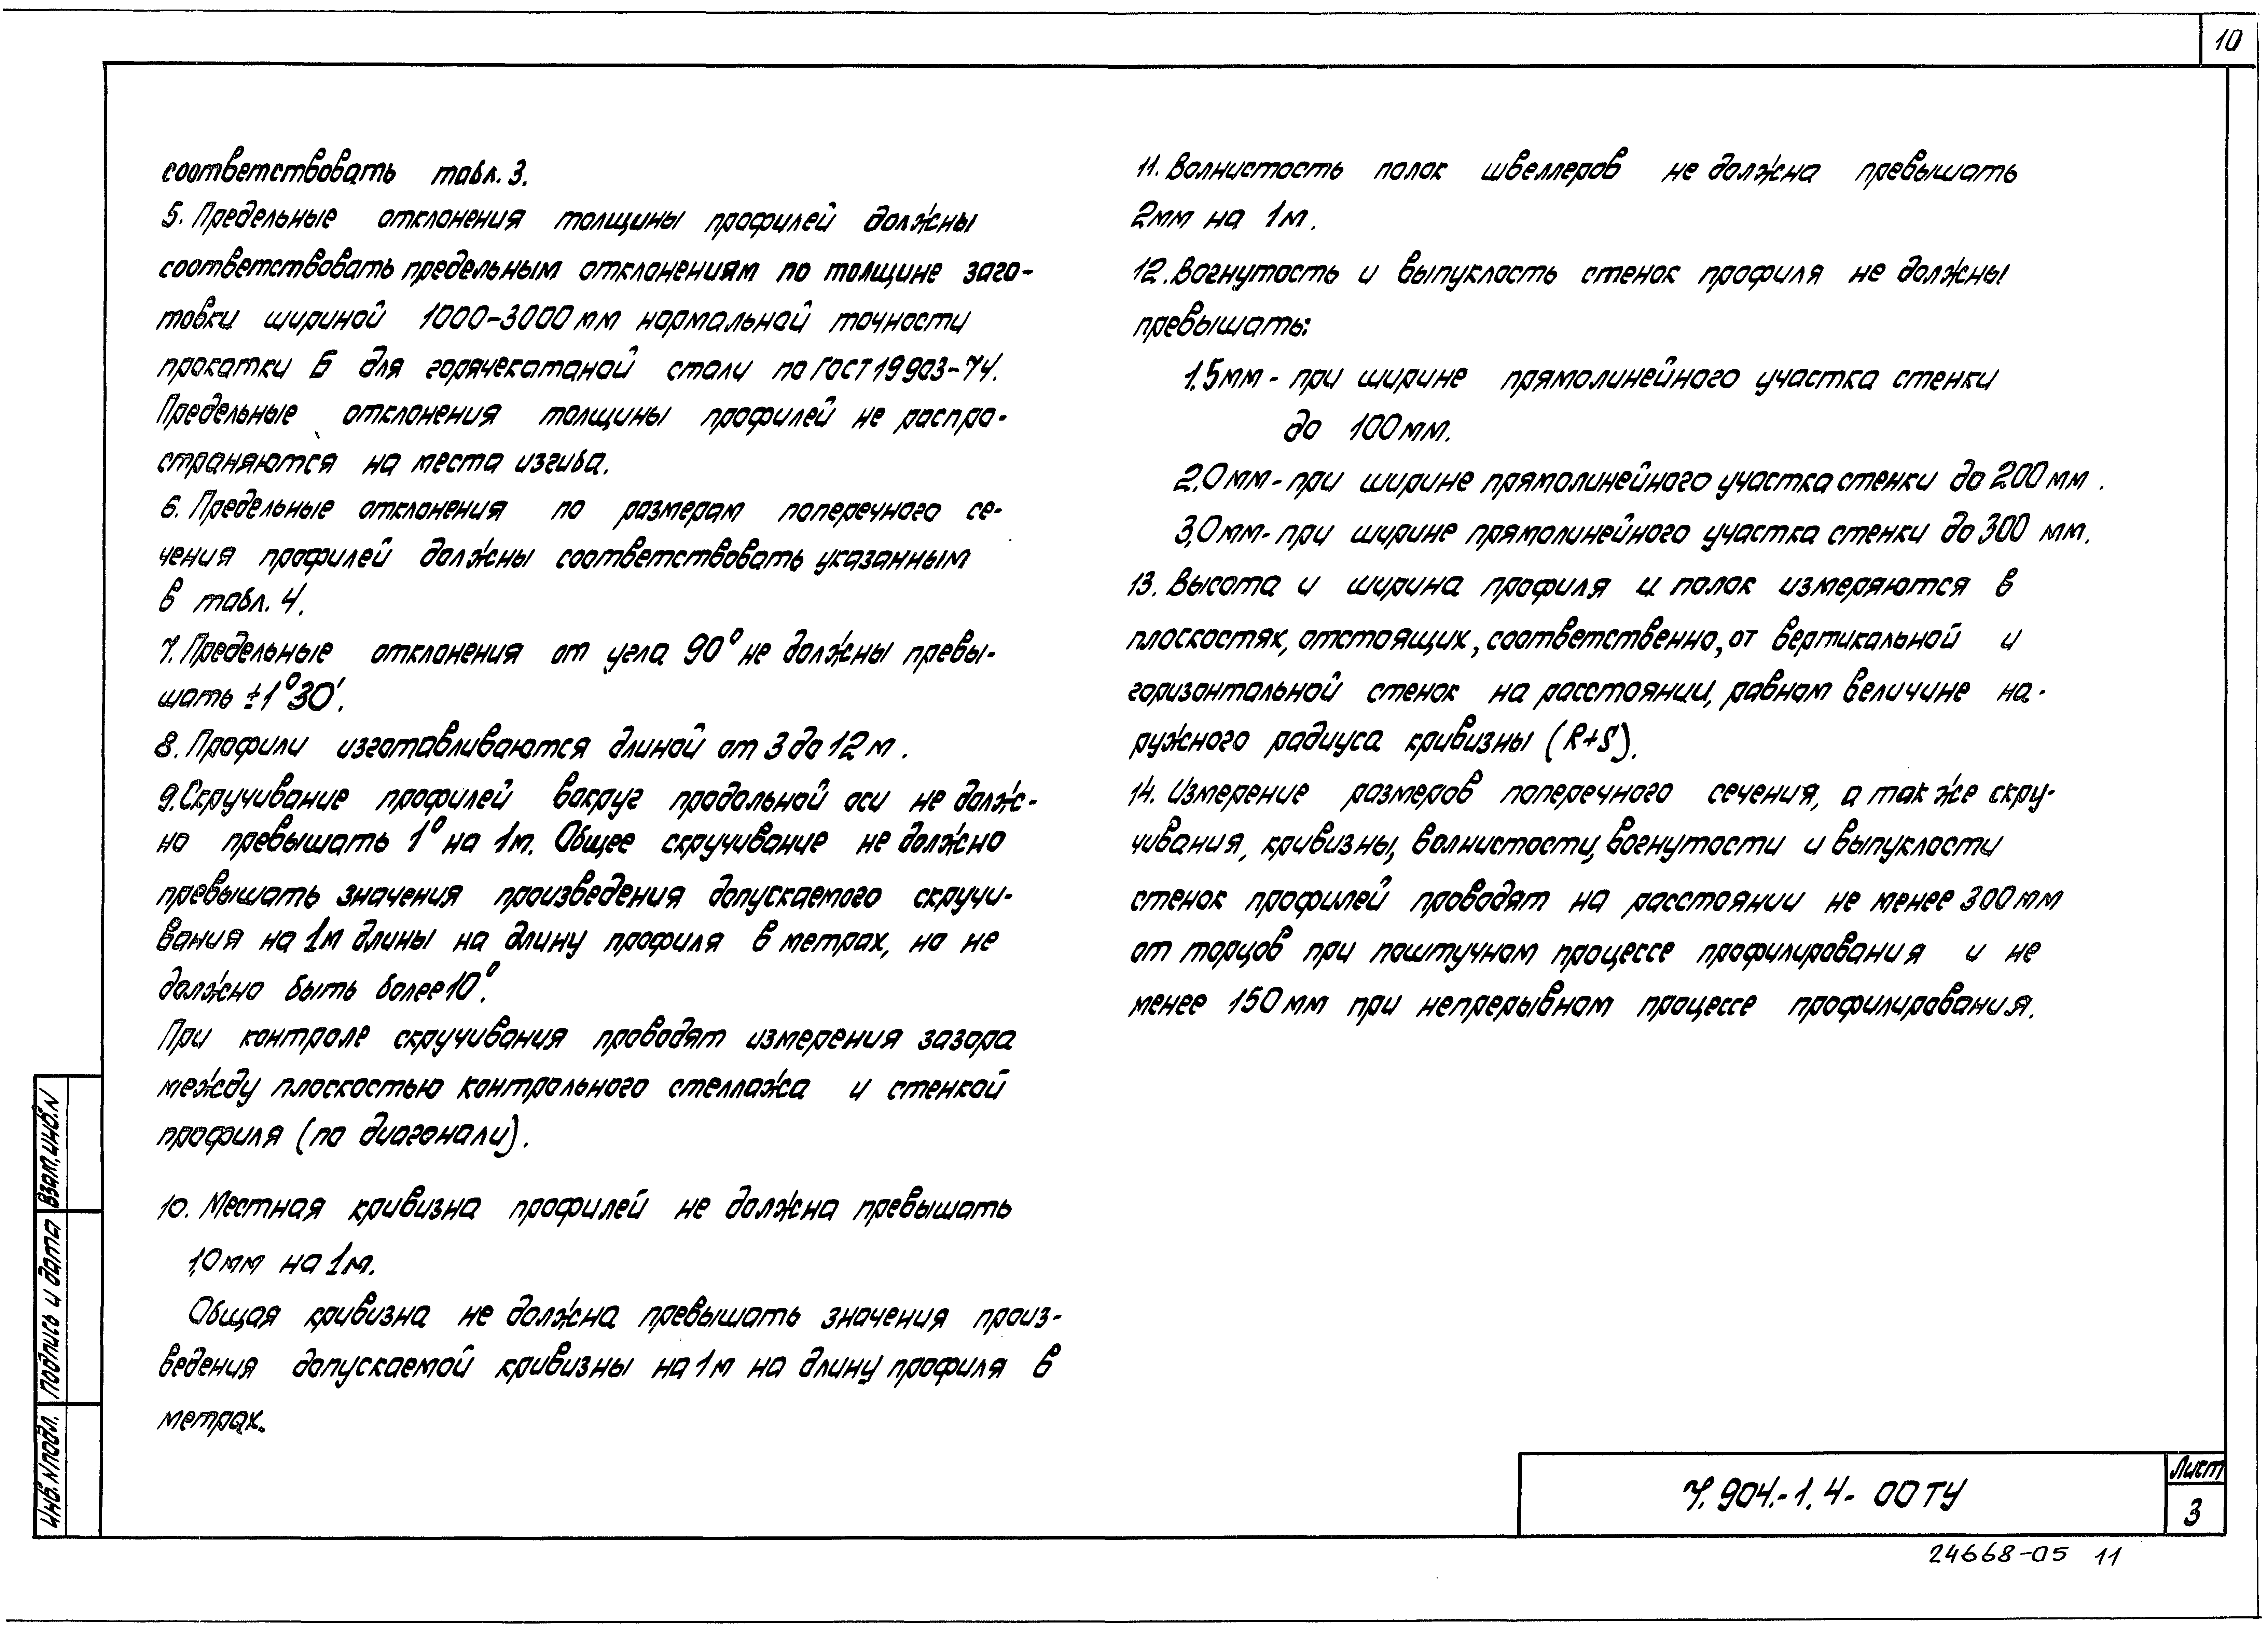 10
соответствовать табл. 3.
5. Предельные отклонения толщины профилей должны
соответствовать предельным отклонениям по толщине заго-
товки шириной 1000-3000 мм нормальной точности
прокатки Б для горячекатаной стали по ГОСТ 19903-74.
Предельные отклонения толщины профилей не распро-
страняются на места изгиба.
6. Предельные отклонения по размерам поперечного се-
чения профилей должны соответствовать указанным
в табл. 4.
7. Предельные отклонения от угла 90° не должны превы-
шать ±1°30'.
8. Профили изготавливаются длиной от 3 до 12 м.
9. Скручивание профилей вокруг продольной оси не долж-
но превышать 1° на 1м. Общее скручивание не должно
превышать значения произведения допускаемого скручи-
вания на 1м длины на длину профиля в метрах, но не
должно быть более 10°.
При контроле скручивания проводят измерения зазора
между плоскостью контрольного стеллажа и стенкой
профиля (по диагонали).
10. Местная кривизна профилей не должна превышать
1,0мм на 1м.
Общая кривизна не должна превышать значения произ-
ведения допускаемой кривизны на 1м на длину профиля в
метрах.
11. Волнистость полок швеллеров не должна превышать
2мм на 1м.
12. Вогнутость и выпуклость стенок профиля не должны
превышать:
1,5мм - при ширине прямолинейного участка стенки
до 100мм.
2,0мм - при ширине прямолинейного участка стенки до 200мм.
3,0мм - при ширине прямолинейного участка стенки до 300 мм.
13. Высота и ширина профиля и полок измеряются в
плоскостях, отстоящих, соответственно, от вертикальной и
горизонтальной стенок на расстоянии, равном величине на-
ружного радиуса кривизны (R+S).
14. Измерение размеров поперечного сечения, а так же скру-
чивания, кривизны, волнистости, вогнутости и выпуклости
стенок профилей проводят на расстоянии не менее 300мм
от торцов при поштучном процессе профилирования и не
менее 150мм при непрерывном процессе профилирования.
Взам. инв. N
Подпись и дата
Инв. N подл.
7.904.-1.4- 00ТУ
Лист
3
24668-05 11